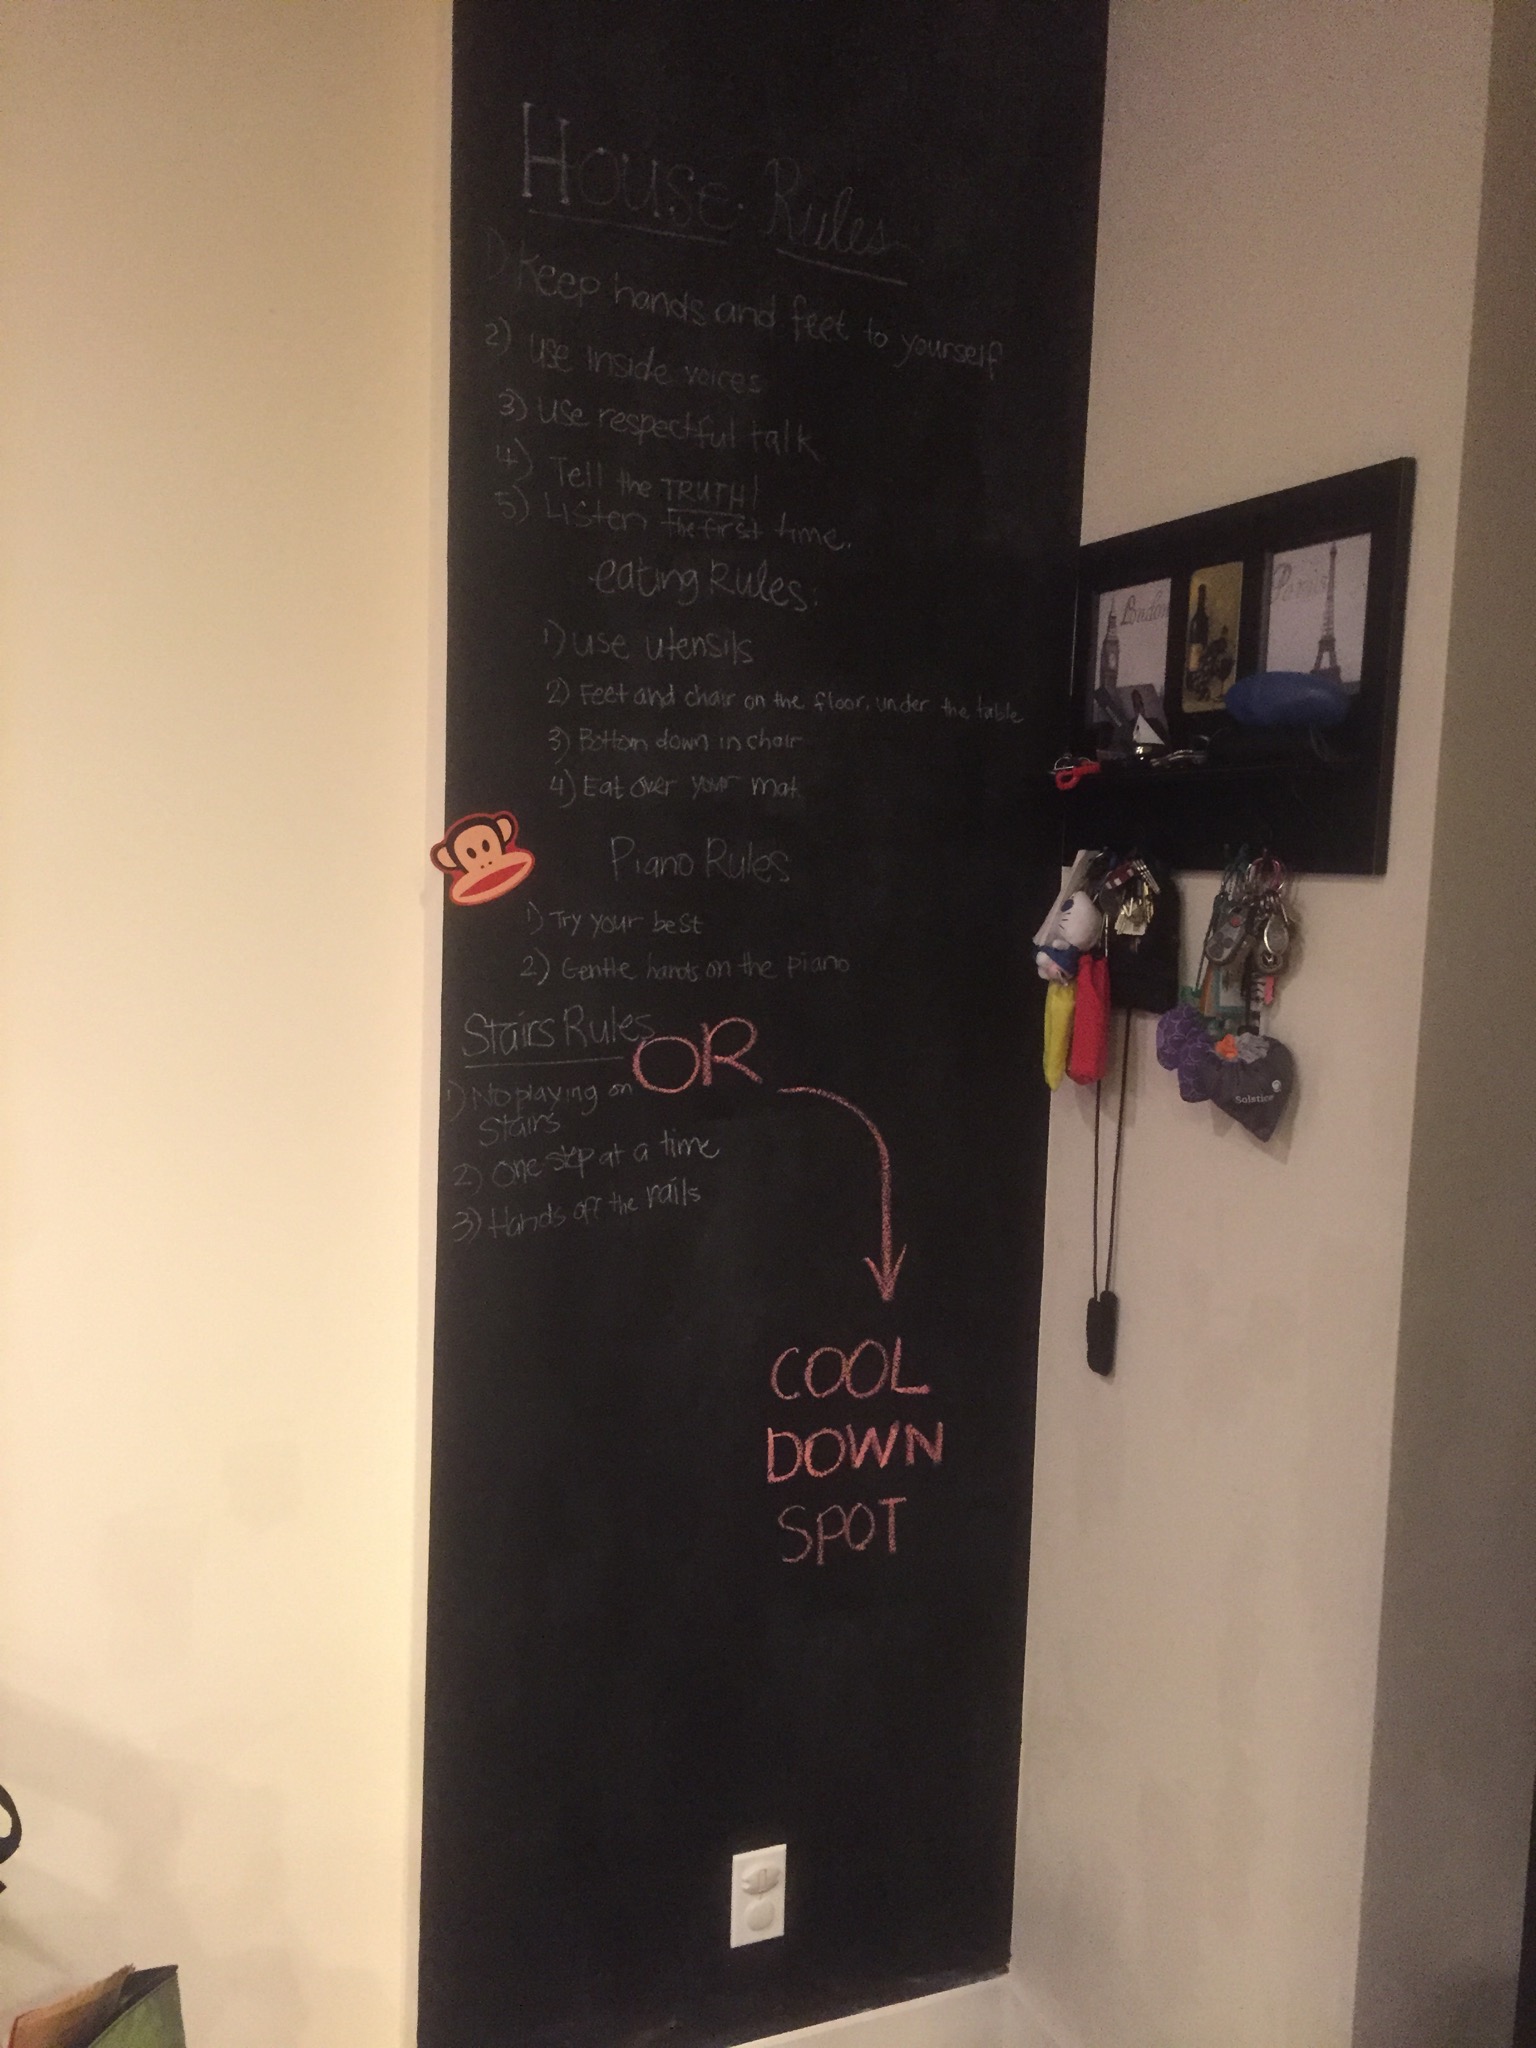 House Rules
1) Keep hands and feet to yourself
2) Use inside voices
3) Use respectful talk
4) Tell the TRUTH!
5) Listen the first time.
eating Rules:
1) Use utensils
2) Feet and chair on the floor, under the table
3) Bottom down in chair
4) Eat over your mat
Piano Rules
1) Try your best
2) Gentle hands on the piano
Stairs Rules
1) No playing on
stairs
2) One step at a time
3) Hands off the rails
OR
COOL
DOWN
SPOT
London
Paris
Solstice